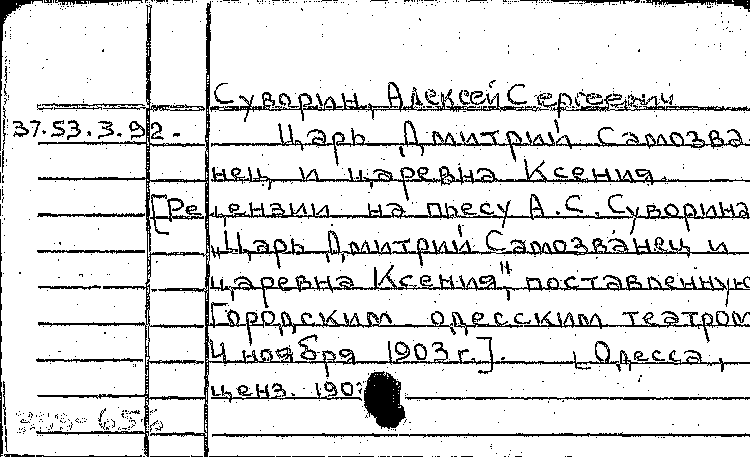 Суворин, Алексей Сергеевич
37.53.3.92. Царь Дмитрий Самозва-
нец и царевна Ксения.
[Рецензии на пьесу А.С.Суворина
"Царь Дмитрий Самозванец и
царевна Ксения", поставленную
Городским одесским театром
4 ноября 1903 г.]. [Одесса,
ценз. 190
656